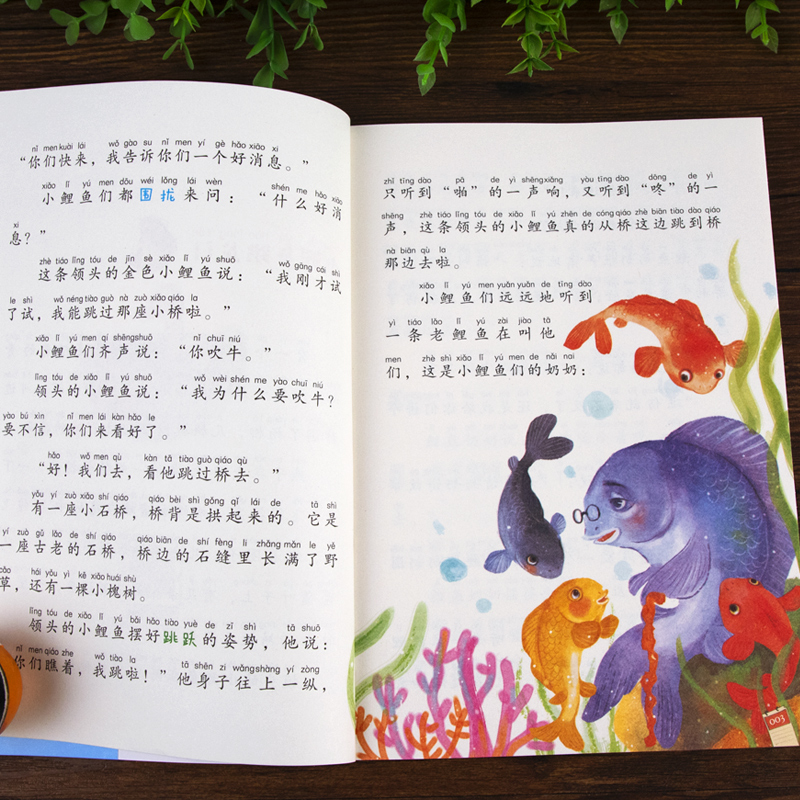 nǐ men kuài lái wǒ gào su nǐ men yí gè hǎo xiāo xi
“你们快来，我告诉你们一个好消息。”
xiǎo lǐ yú men dōu wéi lǒng lái wèn shén me hǎo xiāo
小鲤鱼们都围拢来问：“什么好消
xi
息？”
zhè tiáo lǐng tóu de jīn sè xiǎo lǐ yú shuō wǒ gāng cái shì
这条领头的金色小鲤鱼说：“我刚才试
le shì wǒ néng tiào guò nà zuò xiǎo qiáo la
了试，我能跳过那座小桥啦。”
xiǎo lǐ yú men qí shēng shuō nǐ chuī niú
小鲤鱼们齐声说：“你吹牛。”
lǐng tóu de xiǎo lǐ yú shuō wǒ wèi shén me yào chuī niú
领头的小鲤鱼说：“我为什么要吹牛？
yào bú xìn nǐ men lái kàn hǎo le
要不信，你们来看好了。”
hǎo wǒ men qù kàn tā tiào guò qiáo qù
“好！我们去，看他跳过桥去。”
yǒu yí zuò xiǎo shí qiáo qiáo bèi shì gǒng qǐ lái de tā shì
有一座小石桥，桥背是拱起来的。它是
yí zuò gǔ lǎo de shí qiáo qiáo biān de shí fèng li zhǎng mǎn le yě
一座古老的石桥，桥边的石缝里长满了野
cǎo hái yǒu yì kē xiǎo huái shù
草，还有一棵小槐树。
lǐng tóu de xiǎo lǐ yú bǎi hǎo tiào yuè de zī shì tā shuō
领头的小鲤鱼摆好跳跃的姿势，他说：
nǐ men qiáo zhe wǒ tiào la tā shēn zi wǎng shàng yí zòng
你们瞧着，我跳啦！”他身子往上一纵，
zhǐ tīng dào pā de yì shēng xiǎng yòu tīng dào dōng de yì
只听到“啪”的一声响，又听到“咚”的一
shēng zhè tiáo lǐng tóu de xiǎo lǐ yú zhēn de cóng qiáo zhè biān tiào dào qiáo
声，这条领头的小鲤鱼真的从桥这边跳到桥
nà biān qù la
那边去啦。
xiǎo lǐ yú men yuǎn yuǎn de tīng dào
小鲤鱼们远远地听到
yì tiáo lǎo lǐ yú zài jiào tā
一条老鲤鱼在叫他
men zhè shì xiǎo lǐ yú men de nǎi nai
们，这是小鲤鱼们的奶奶：
003